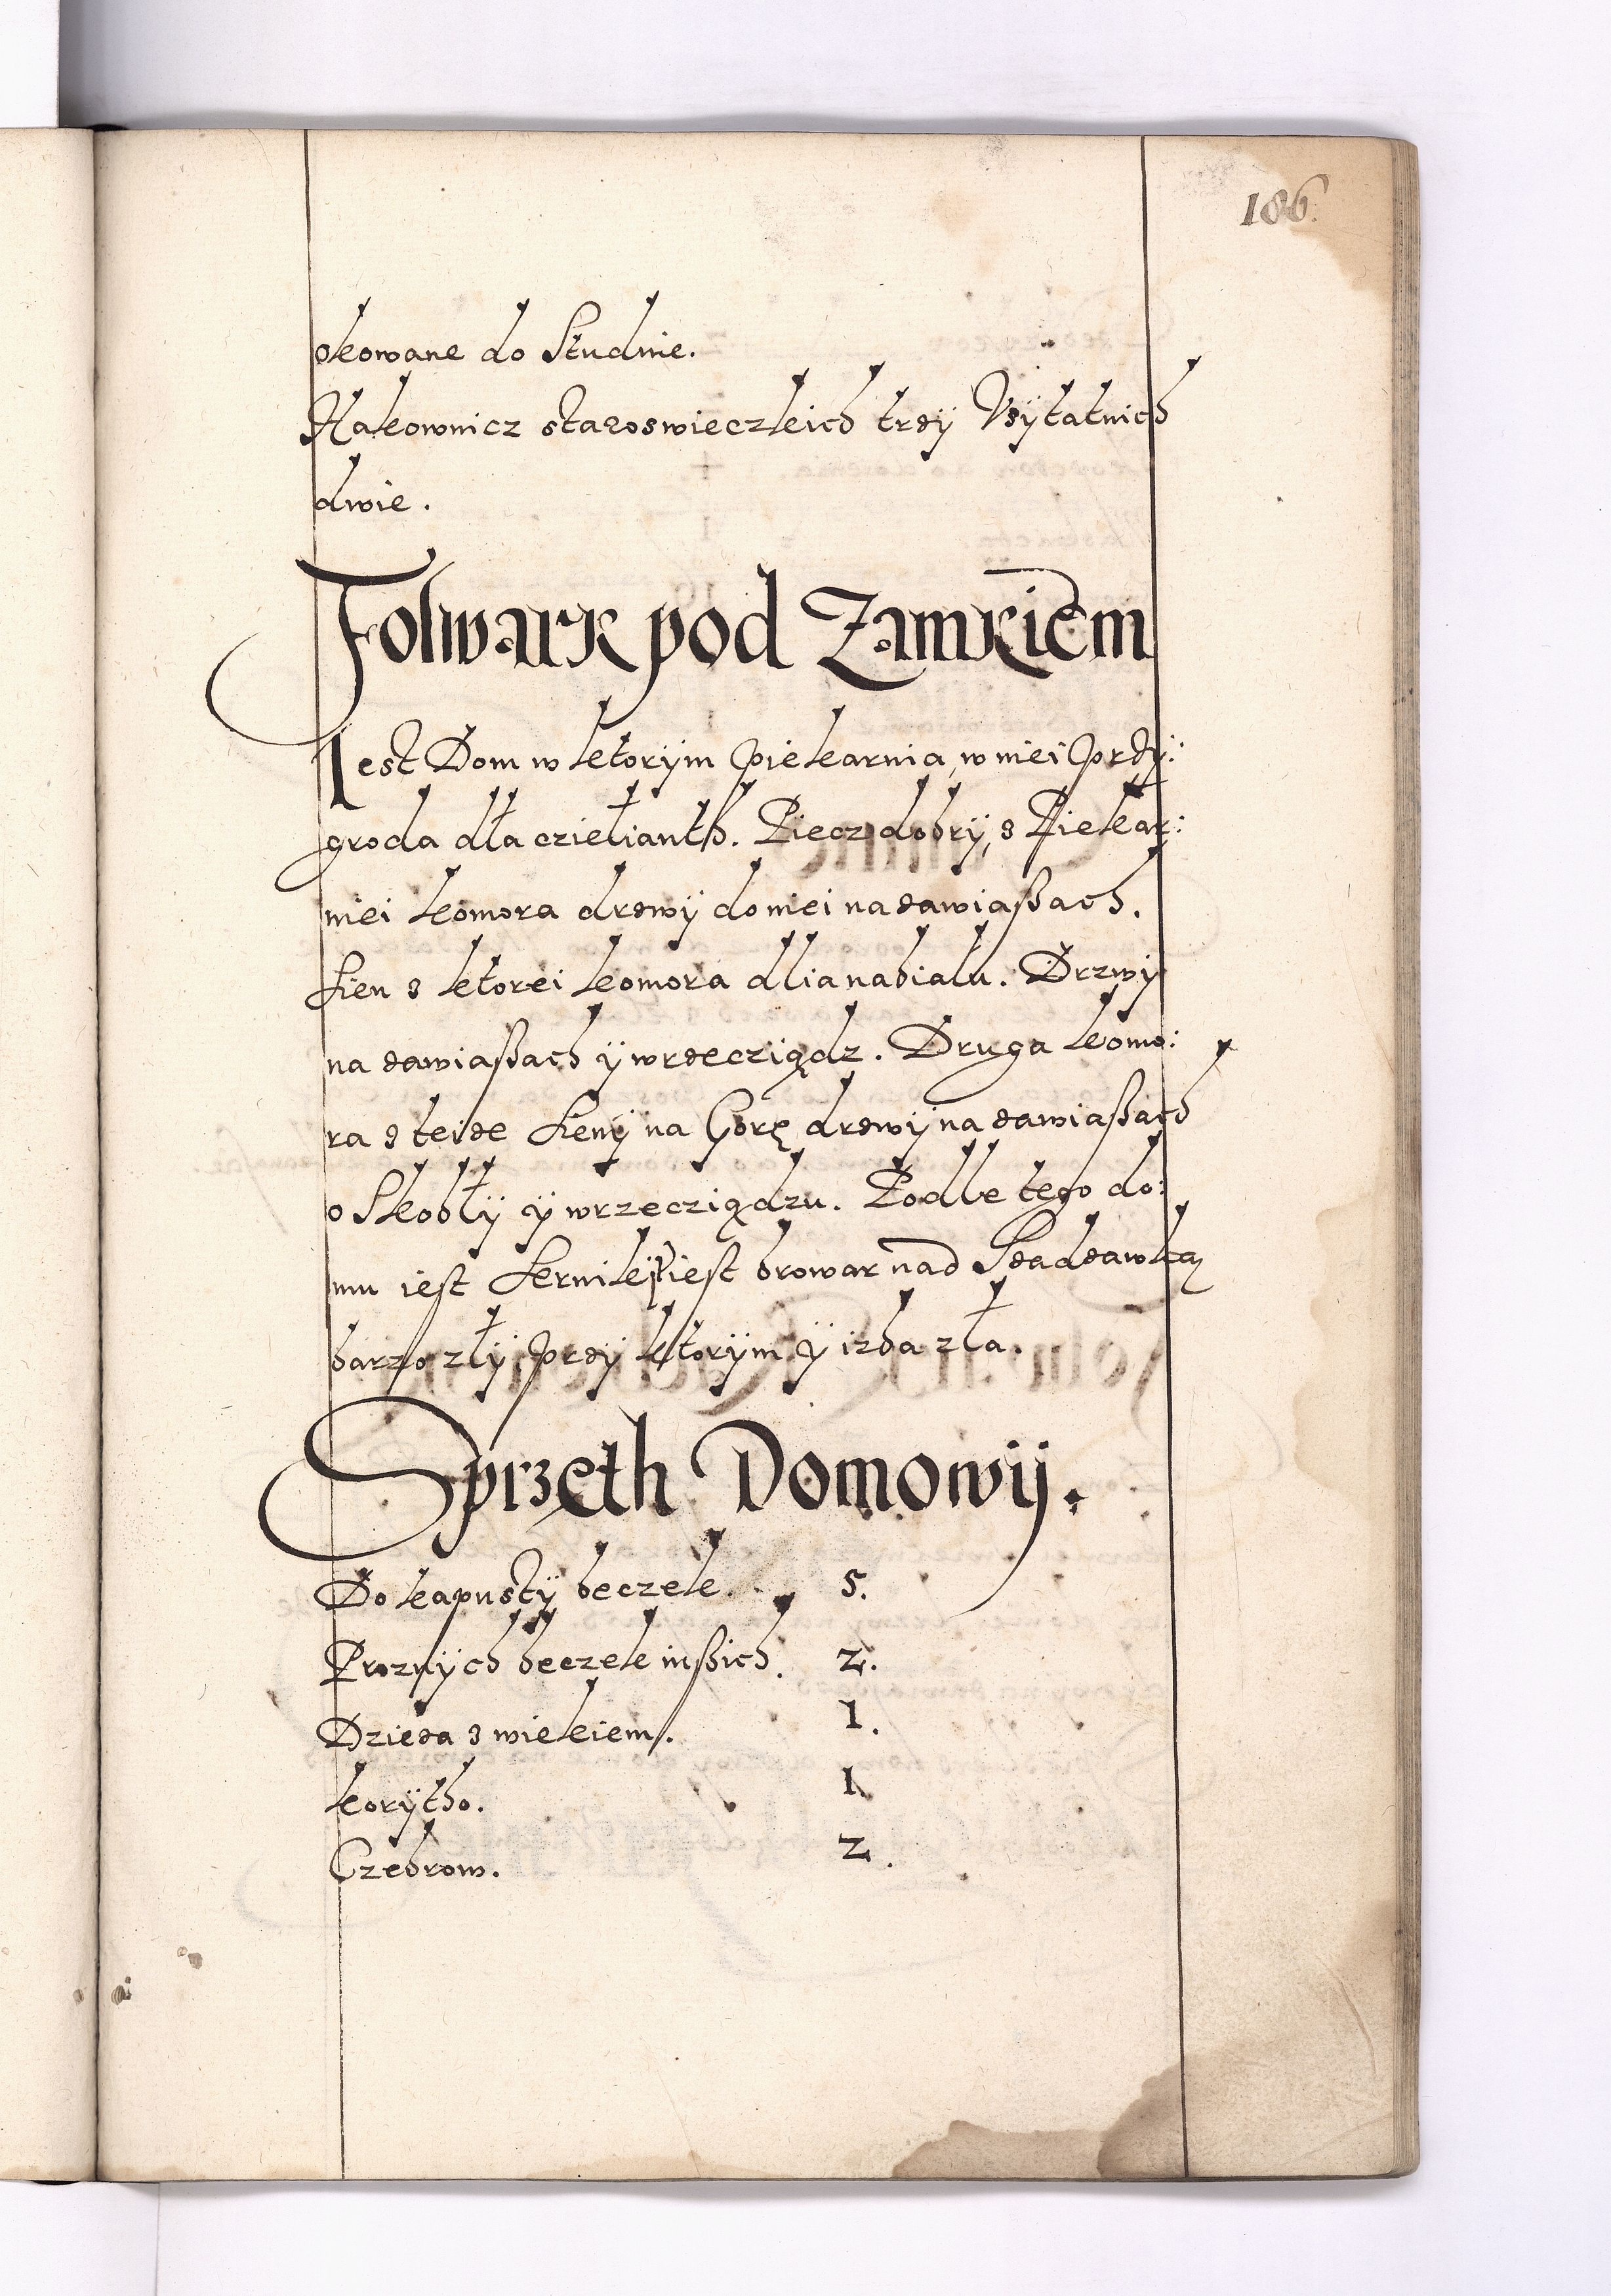 186.
okowane do Studnie.
Hakownicz staroswieczkich trzÿ Vżÿtatnich
dwie.
Folwark pod Zamkiem
Jest Dom w ktorÿm piekarnia, w niei przÿ:
groda dła czieliąnth. Piecz dobrÿ, z Piekar:
niei komora drzwÿ do niei na zawiaßach.
Sien z ktorei komora dlia nabiału. Drzwÿ
na zawiaßach ÿ wrzecziądz. Druga komo:
ra z teize Sienÿ na Gorę drzwÿ na zawiaßach
o Skoblÿ ÿ wrzecziądzu. Podle tego do:
mu iest Sernik iest browar nad Sadzawką
barzo złÿ przÿ ktorÿm ÿ izba zła.
Sprzęth Domowÿ.
Do kapustÿ beczek. 5.
Proznÿch beczek inßich. 2.
Dzieża z wiekiem. 1.
korÿtho. 1
Czebrow. 2.